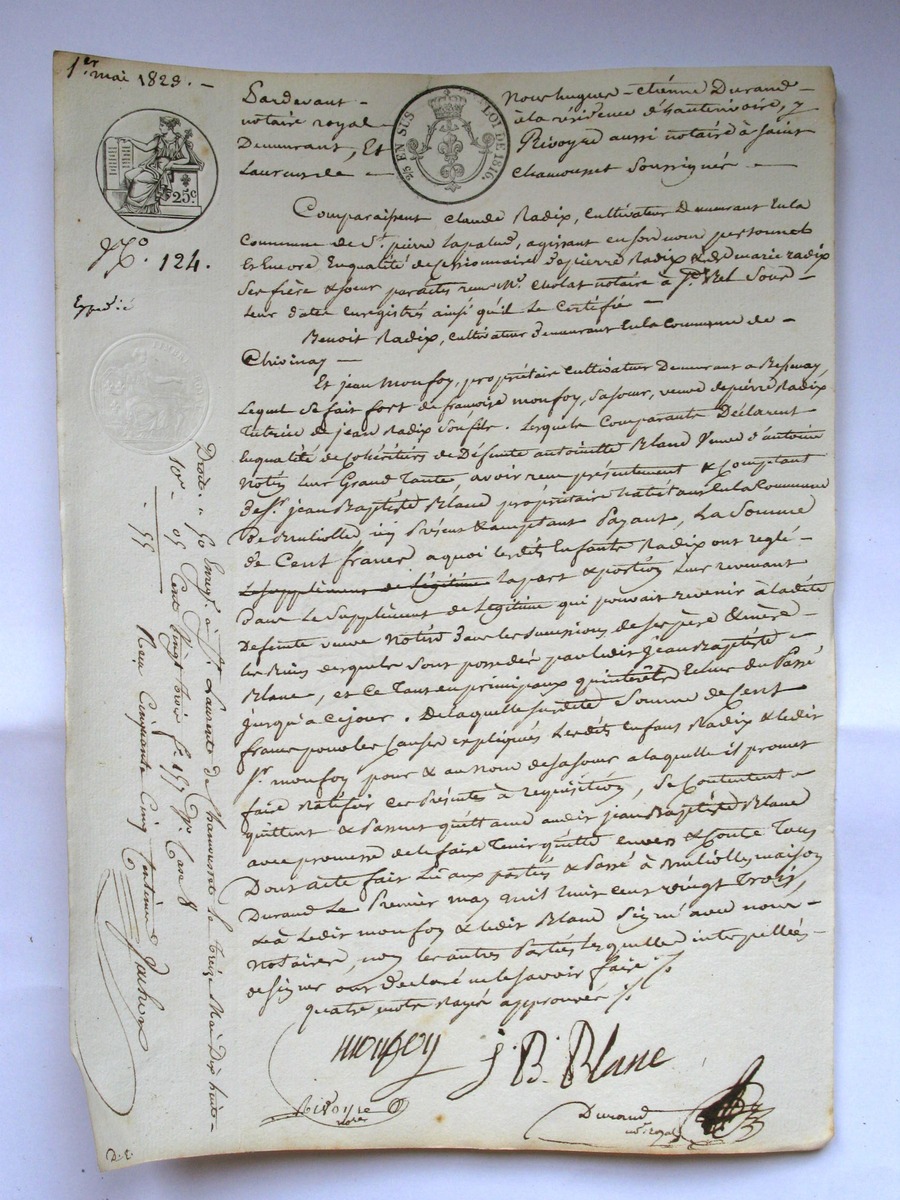 1er mai 1823. -
Pardevant - Nous hugues - étienne Durand -
notaire royal à la résidence d'hauterivoire, y
Demeurant, Et Rivoyre aussi notaire à Saint
Laurent de - chamousset Soussignés -
EN SUS LOI DE 1816.
25c
No. 124.
Expédié
Comparaissent Claude Radix, Cultivateur Demeurant En la
Commune de St. pierre lapalud, agissant en son nom personnel
Et Encore En qualité de cessionnaire de pierre Radix & de marie radix
Ses frère & soeur par actes reçus Me. Cholat notaire à St. Bel Sous
leur date enregistrés ainsi qu'il le Certifie -
Benoit Radix, Cultivateur Demeurant En la Commune de -
Chivinay -
Et jean monfoy, propriétaire Cultivateur Demeurant a Bessenay
Lequel Se fait fort de françoise monfoy, Sa soeur, veuve de pierre Radix
tutrice de jean Radix Son fils. Lesquels Comparants Déclarent
En qualité de Cohéritiers de Défunte antoinette Blanc Veuve d'antoine
leur Grand Tante, avoir reçu présentement & Comptant
de Sr. jean Baptiste Blanc propriétaire habitant En la Commune
De Bruliolle, ici Présent & acceptant Payant, La Somme
de Cent francs a quoi lesdits Enfants Radix ont reglé -
le supplément de légitime la part & portion leur revenant
Dans Le Supplément de Légitime qui pouvait revenir à ladite
Defunte veuve dans les successions de ses père & mère -
les biens desquels sont possédés par ledit jean Baptiste -
Blanc, et Ce Tant en principaux qu'intérêts Echus du Passé
jusqu'à ce jour. De laquelle susdite Somme de Cent
francs pour les Causes expliquées lesdits enfans Radix & ledit
Sr. monfoy pour & au nom de sa soeur a laquelle il promet
faire Ratifier ces Présentes à réquisition, Se Contentent -
quittent & Passent quittance audit jean Baptiste Blanc
avec promesse de le faire Tenir quitte envers & Contre Tous
Dont acte fait Lu aux parties & Passé à Brulliolles maison
Durand Le Premier may mil huit cent vingt Trois,
& à Ledit monfoy & ledit Blanc Signé avec nous -
notaires, non les autres Parties lesquelles interpellées -
de signer ont Déclaré ne le savoir faire
quatre mots rayés approuvés
monfoy J. B. Blanc
Rivoyre Durand
nore. nre. royal
Enregé. à St. Laurent de Chamousset le Treize Mai Dix huit
Cent Vingt Trois fo. 157 Vo. Case 8
Reçu Cinquante Cinq Centimes
Droits
10e. - 05
. 55